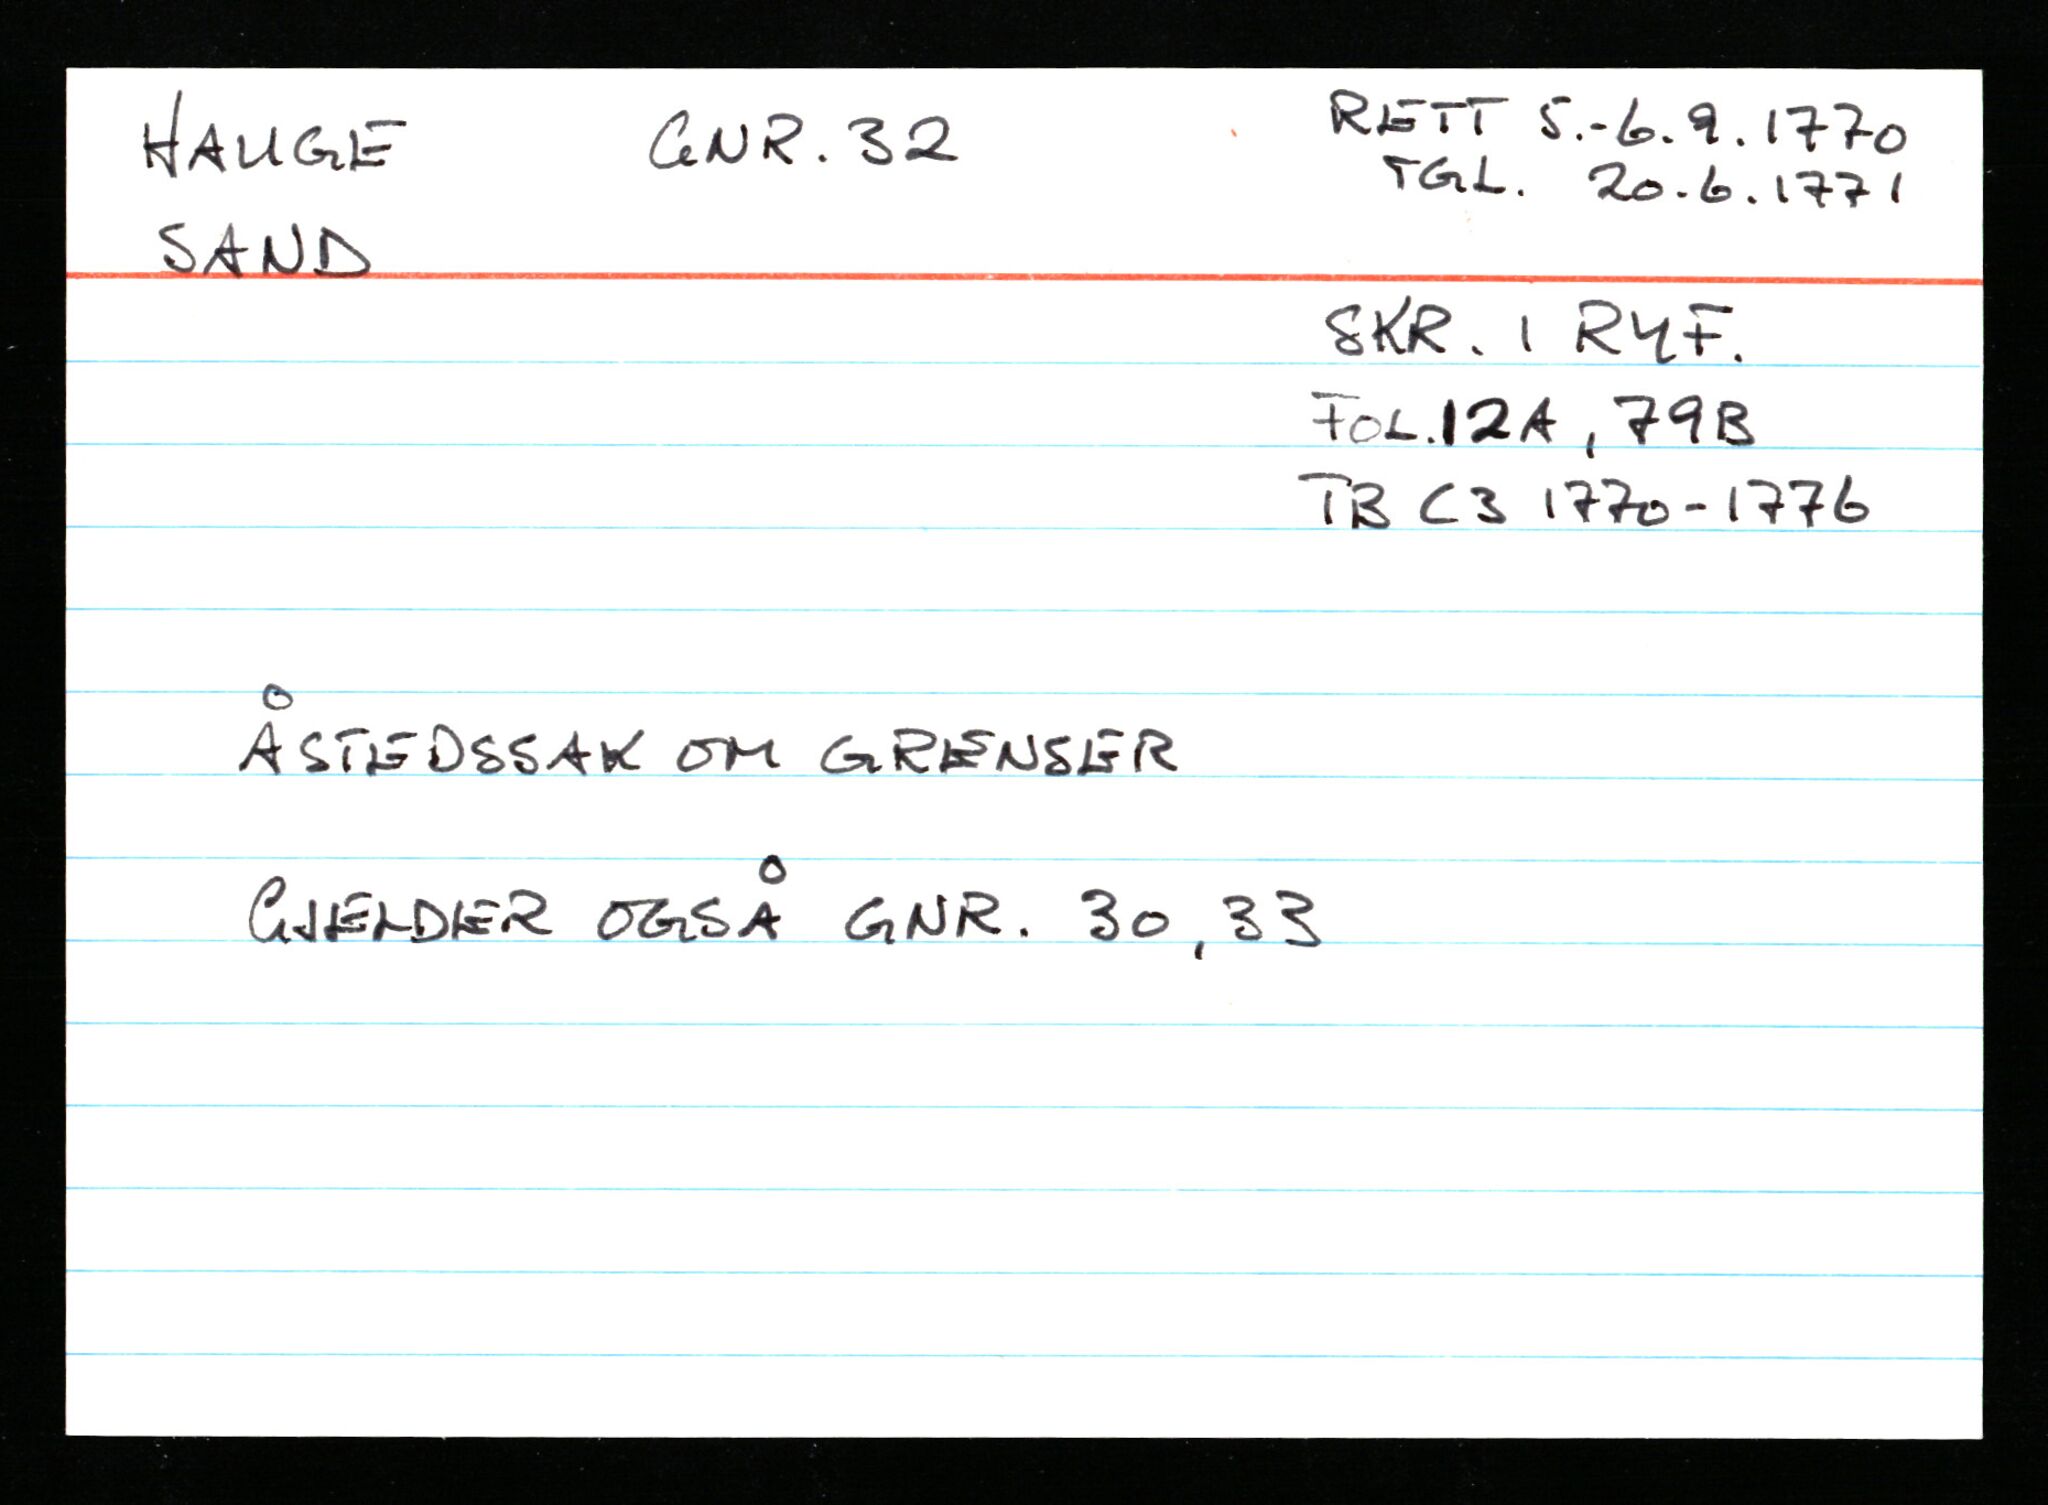 HAUGE GNR. 32 RETT 5.-6.9.1770
TGL. 20.6.1771
SAND
SKR. I RYF.
FOL. 12A, 79B
TB C3 1770-1776
ÅSTEDSSAK OM GRENSER
GJELDER OGSÅ GNR. 30, 33